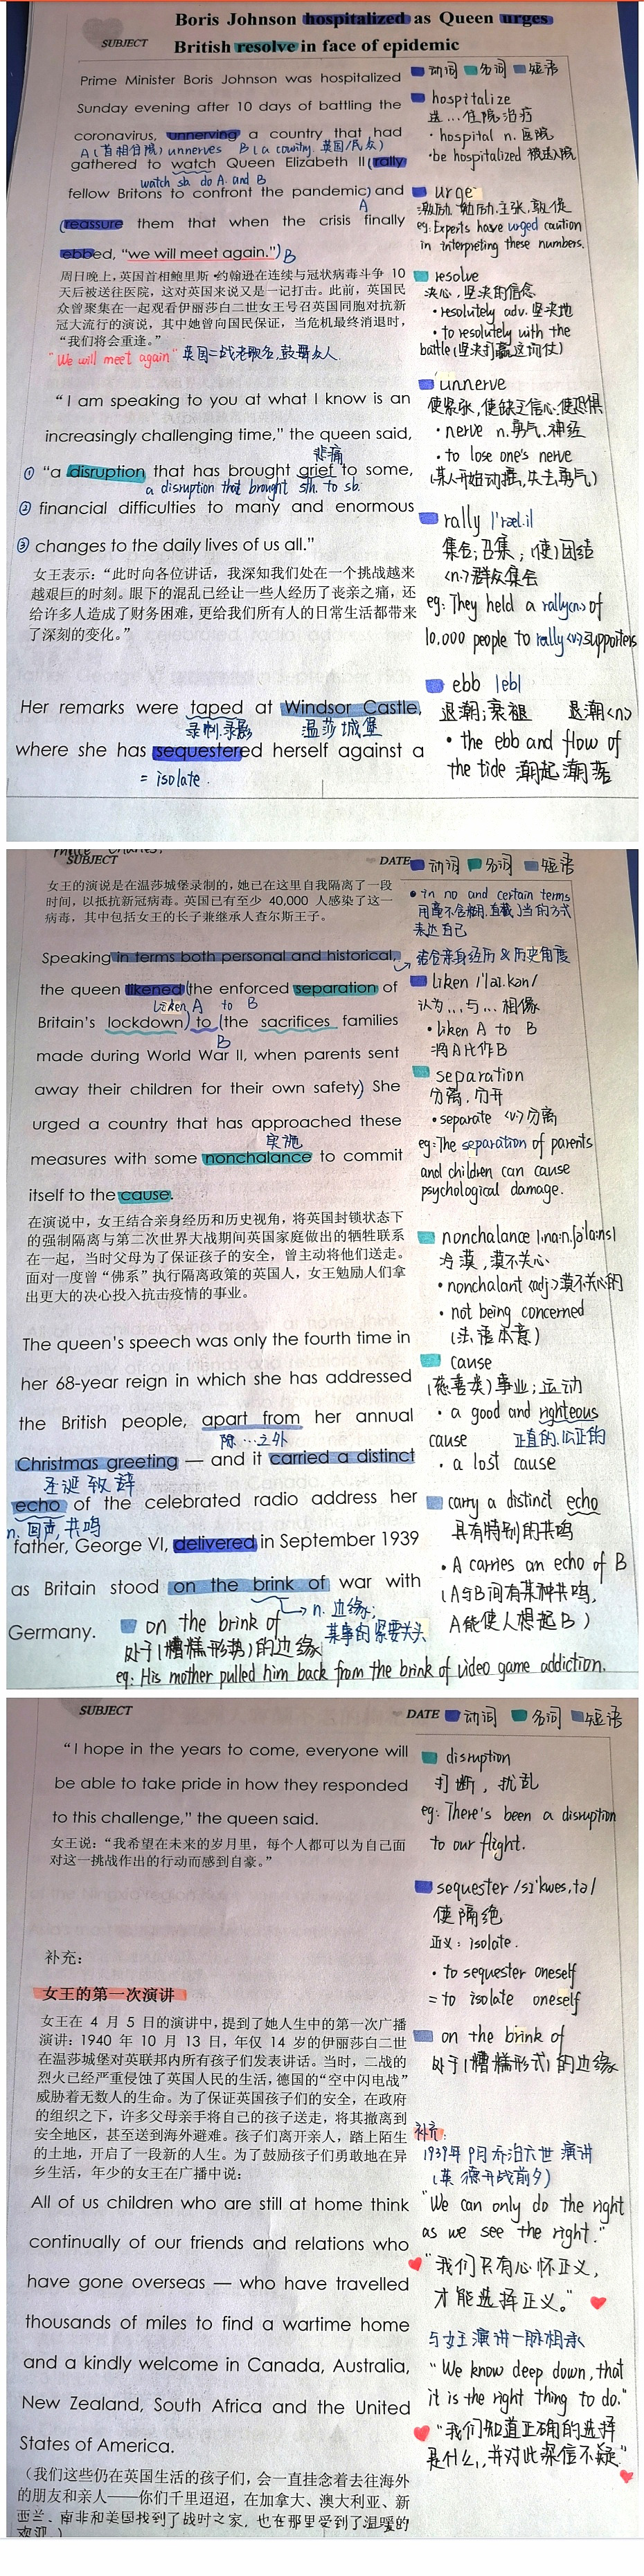 Boris Johnson hospitalized as Queen urges
SUBJECT
British resolve in face of epidemic
Prime Minister Boris Johnson was hospitalized
Sunday evening after 10 days of battling the
coronavirus, unnerving a country that had
A(首相住院) unnerves B(a country. 英国/民众)
gathered to watch Queen Elizabeth II (rally
watch sb. do A. and B
fellow Britons to confront the pandemic) and
A
(reassure them that when the crisis finally
ebbed, "we will meet again.") B
周日晚上，英国首相鲍里斯·约翰逊在连续与冠状病毒斗争 10
天后被送往医院，这对英国来说又是一记打击。此前，英国民
众曾聚集在一起观看伊丽莎白二世女王号召英国同胞对抗新
冠大流行的演说，其中她曾向国民保证，当危机最终消退时，
“我们将会重逢。”
"We will meet again" 英国二战老歌名,鼓舞众人.
“I am speaking to you at what I know is an
increasingly challenging time,” the queen said,
悲痛
① “a disruption that has brought grief to some,
a disruption that brought sth. to sb.
② financial difficulties to many and enormous
③ changes to the daily lives of us all.”
女王表示：“此时向各位讲话，我深知我们处在一个挑战越来
越艰巨的时刻。眼下的混乱已经让一些人经历了丧亲之痛，还
给许多人造成了财务困难，更给我们所有人的日常生活都带来
了深刻的变化。”
Her remarks were taped at Windsor Castle,
录制.录影 温莎城堡
where she has sequestered herself against a
= isolate.
动词 名词 短语
hospitalize
送...住院治疗
• hospital n. 医院
• be hospitalized 被送入院
urge
激励, 勉励, 主张, 敦促
eg: Experts have urged caution
in interpreting these numbers.
resolve
决心, 坚决的信念
• resolutely adv. 坚决地
• to resolutely with the
battle (坚决打赢这前仗)
unnerve
使紧张, 使缺乏信心.使恐惧
• nerve n. 勇气. 神经
• to lose one's nerve
(某人开始动摇, 失去勇气)
rally l'ræl.il
集会; 召集; (使)团结
<n.> 群众集会
eg: They held a rally<n> of
10,000 people to rally<v> supporters
ebb lebl
退潮; 衰褪 退潮<n>
• the ebb and flow of
the tide 潮起潮落
SUBJECT
DATE 动词 名词 短语
女王的演说是在温莎城堡录制的，她已在这里自我隔离了一段
时间，以抵抗新冠病毒。英国已有至少 40,000 人感染了这一
病毒，其中包括女王的长子兼继承人查尔斯王子。
Speaking in terms both personal and historical,
the queen likened (the enforced separation of
liken A to B
Britain's lockdown) to (the sacrifices families
B
made during World War II, when parents sent
away their children for their own safety) She
urged a country that has approached these
实施
measures with some nonchalance to commit
itself to the cause.
在演说中，女王结合亲身经历和历史视角，将英国封锁状态下
的强制隔离与第二次世界大战期间英国家庭做出的牺牲联系
在一起，当时父母为了保证孩子的安全，曾主动将他们送走。
面对一度曾“佛系”执行隔离政策的英国人，女王勉励人们拿
出更大的决心投入抗击疫情的事业。
The queen's speech was only the fourth time in
her 68-year reign in which she has addressed
the British people, apart from her annual
除...之外
Christmas greeting — and it carried a distinct
圣诞致辞
echo of the celebrated radio address her
n. 回声, 共鸣
father, George VI, delivered in September 1939
as Britain stood on the brink of war with
n. 边缘;
Germany. on the brink of 某事的紧要关头
处于(糟糕形势)的边缘
eg: His mother pulled him back from the brink of video game addiction.
• in no and certain terms
用毫不含糊.直截了当的方式
表达自己
结合亲身经历&历史角度
liken /'laɪ.kən/
认为...与...相像
• liken A to B
将A比作B
separation
分离, 分开
• separate <v> 分离
eg: The separation of parents
and children can cause
psychological damage.
nonchalance
冷漠, 漠不关心
• nonchalant <adj> 漠不关心的
• not being concerned
(法语本意)
cause
(慈善类)事业; 运动
• a good and righteous
cause 正直的.公正的
• a lost cause
carry a distinct echo
具有特别的共鸣
• A carries an echo of B
(A与B间有某种共鸣,
A能使人想起B)
SUBJECT
DATE 动词 名词 短语
“I hope in the years to come, everyone will
be able to take pride in how they responded
to this challenge,” the queen said.
女王说：“我希望在未来的岁月里，每个人都可以为自己面
对这一挑战作出的行动而感到自豪。”
补充：
女王的第一次演讲
女王在 4 月 5 日的演讲中，提到了她人生中的第一次广播
演讲：1940 年 10 月 13 日，年仅 14 岁的伊丽莎白二世
在温莎城堡对英联邦内所有孩子们发表讲话。当时，二战的
烈火已经严重侵蚀了英国人民的生活，德国的“空中闪电战”
威胁着无数人的生命。为了保证英国孩子们的安全，在政府
的组织之下，许多父母亲手将自己的孩子送走，将其撤离到
安全地区，甚至送到海外避难。孩子们离开亲人，踏上陌生
的土地，开启了一段新的人生。为了鼓励孩子们勇敢地在异
乡生活，年少的女王在广播中说：
All of us children who are still at home think
continually of our friends and relations who
have gone overseas — who have travelled
thousands of miles to find a wartime home
and a kindly welcome in Canada, Australia,
New Zealand, South Africa and the United
States of America.
（我们这些仍在英国生活的孩子们，会一直挂念着去往海外
的朋友和亲人——你们千里迢迢，在加拿大、澳大利亚、新
西兰、南非和美国找到了战时之家，也在那里受到了温暖的
欢迎。）
disruption
打断, 扰乱
eg: There's been a disruption
to our flight.
sequester /sɪ'kwes.tə/
使隔绝
近义: isolate.
• to sequester oneself
= to isolate oneself
on the brink of
处于(糟糕形式)的边缘
补充:
1939年9月乔治六世演讲
(英德开战前夕)
"We can only do the right
as we see the right."
"我们只有心怀正义,
才能选择正义。"
与女王演讲一脉相承
"We know deep down, that
it is the right thing to do."
"我们知道正确的选择
是什么, 并对此深信不疑"